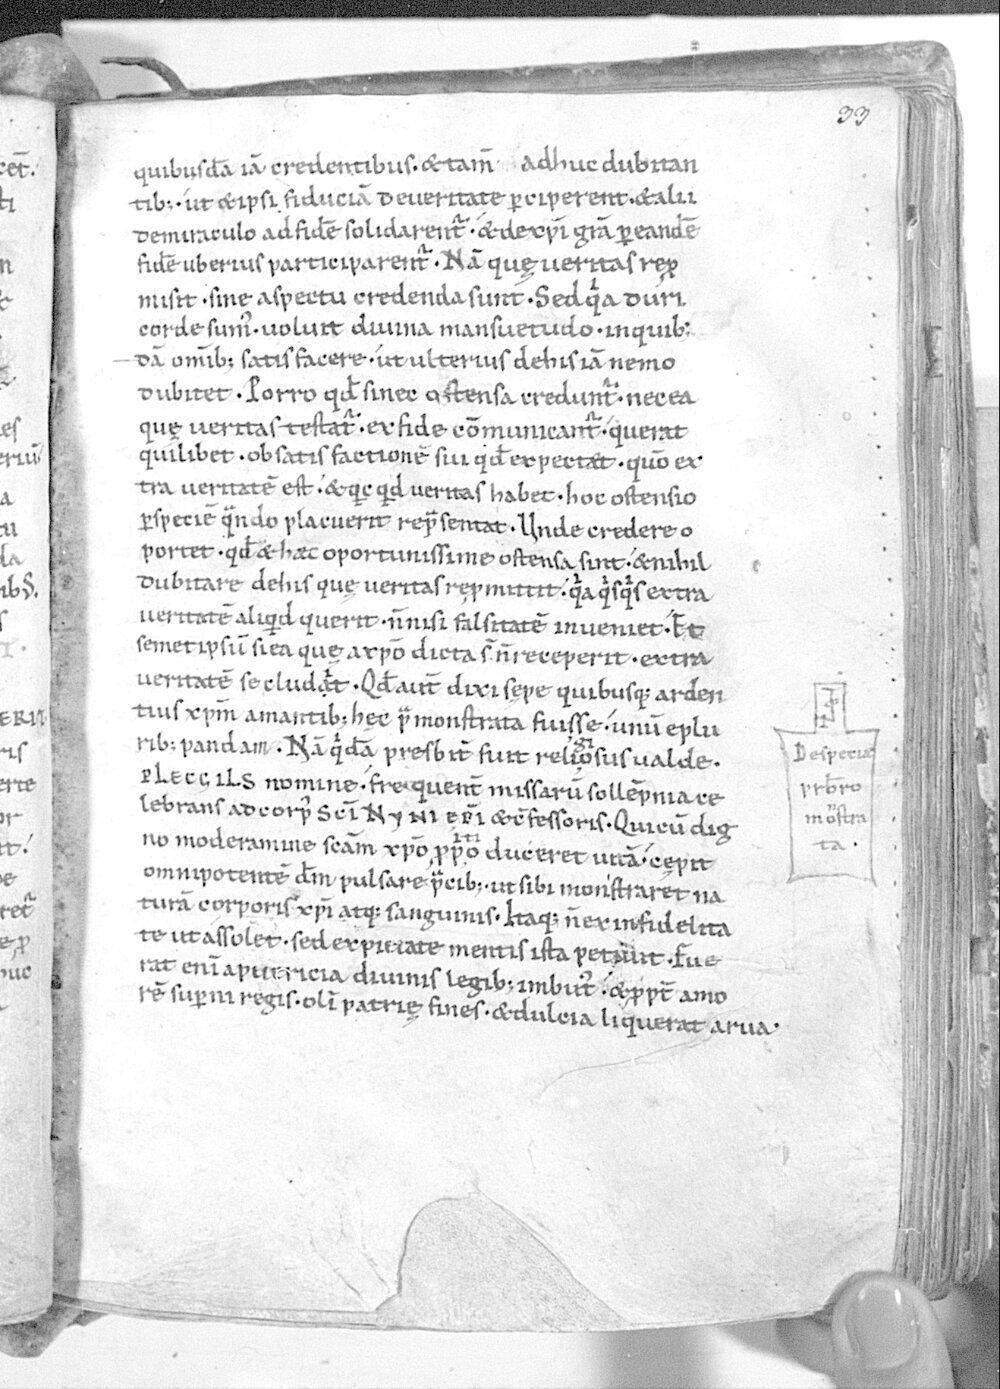 33
quibusdā iā credentibus. &tam̄ adhuc dubitan
tib; · ut &ipsi fiduciā deueritate ꝑciperent. &alii
demiraculo adfidē solidarent᷑ · &dexp̄i grā ꝑeandē
fidē uberius participarent᷑ · Nā quę ueritas rep̱
misit · sine aspectu credenda sunt · Sed qͥa duri
corde sum᷒ · uoluit diuina mansuetudo · inquib;
dā omīb; satisfacere · ut ulterius dehis iā nemo
dubitet · Porro qd̄ sinec ostensa credunt᷑ · necea
quę ueritas testat᷑ · exfide cōmunicant᷑ · querat
quilibet · obsatisfactionē sui qd̄ expectat · quō ex
tra ueritatē est · &qͥcqͥd ueritas habet · hoc ostensio
ꝑspeciē qͣndo placuerit rep̄sentat · Unde credere o
portet · qd̄ & hæc oportunissime ostensa sint · &nihil
dubitare dehis quę ueritas rep̱mittit · qͥa qͥsqͥs extra
ueritatē aliqͥd querit · n̄nisi falsitatē inueniet · Et
semetipsū siea quę axp̄o dicta s̄ n̄receperit · extra
ueritatē secludͣt · Qd̄ aut̄ dixi sepe quibusq; arden
tius xp̄m amantib; hęc p̄monstrata fuisse · unū eplu
rib; pandam · Nā qͥdā presbit̄ fuit religiosus ualde ·
PLECGILS nomine · frequent̄ missarū sollēpnia ce
lebrans adcorp᷒ sc̄i NYNI ep̄i &c̄fessoris · Quicū dig
no moderamine sc̄am xp̄o ꝓpitio duceret uitā · cepit
omnipotentē dm̄ pulsare p̄cib; · ut sibi monstraret na
turā corporis xp̄i atq; sanguinis · Itaq; n̄ex infidelita
te ut assolet · sed expietate mentis ista petiuit · Fue
rat eni apuericia diuinis legib; imbut᷒ · &ꝓpt̄ amo
rē suꝑni regis · olī patrię fines · &dulcia liquerat arua ·
De specia
prb̄ro
mōstra
ta ·